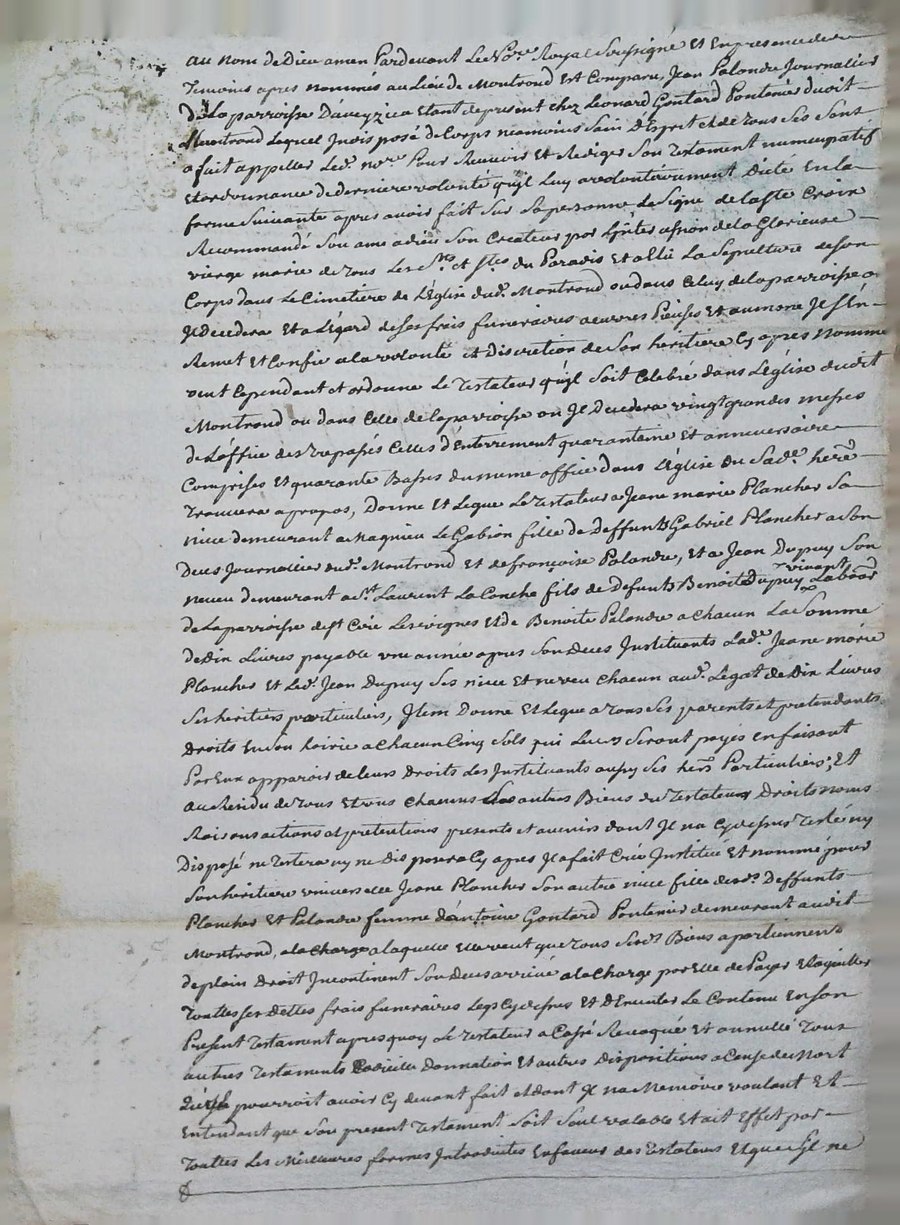 au nom de Dieu amen Pardevant Le Nore Royal Soussigné Et En presence des
Temoins apres nommés au Lieu de Montrond Est Comparu, Jean Palandre Journalier
De La parroisse D'aveyzieu Etant de present chez Leonard Gontard Pontenier dudit
Montrond Lequel Indisposé de Corps neamoins Sain D'Esprit et de tous Ses Sens
a fait appeller Led. nore Pour Recevoir Et Rediger Son Testament numcupatif
Et ordonnance de derniere volonté qu'jl Luy a volontairement Dicté En la
forme Suivante apres avoir fait Sur Sa personne Le Signe de la ste Croix
Recommandé Son ame a dieu Son Createur par L'jntercession de la Glorieuse
vierge marie de tous Les Sts et stes du Paradis Et a Elü La Sepulture de son
Corps dans Le Cimetiere de L'Eglise dud. Montrond ou dans Celuy de la parroisse o
Je decedera Et a L'Egard de ses frais funeraires oeuvres Pieuses Et aumone Jl s'En
Remet Et Confie a la volonté et discretion de Son heritiere Cy apres nommé
veut Cependant et ordonne Le Testateur qu'jl Soit Celebré dans L'Eglise dudit
Montrond ou dans Celle de la parroisse ou Jl Decedera vingt grandes messes
de L'office des trepasés Celles d'Enterrement quarantaine Et anniversaire
Comprises Et quarante Basses du meme office dans L'Eglise du Sad. here
Trouvera a propos, Donne Et Legue Le Testateur a Jeane marie Plancher Sa
niece demeurant a Magnieu Le Gabion fille de Deffunts Gabriel Plancher a Son
Deces Journallier dud. Montrond Et de françoise Palandre, Et a Jean Dupuy Son
neveu demeurant a St Laurent La Conche fils de Defunts Benoit Dupuy vivant Labour
de La parroisse de st Cire Les vignes Et de Benoite Palandre a chacun La Somme
de Dix Livres payable une année apres Son deces Jnstituants Lade Jeane marie
Plancher Et Led. Jean Dupuy Ses niece Et neveu chacun aud. Legat de Dix Livres
Ses heritiers particuliers, Jtem Donne Et Legue a tous Ses parents et pretendants
Droits En Son hoirie a chacun Cinq Sols qui Leurs Seront payes en faisant
Par Eux apparoir de leurs Droits Les Jnstituants aussy Ses hers Particuliers; Et
au Rendu de tous Et uns chacuns Les autres Biens du Testateur Droits noms
Raisons actions et pretentions presents et avenirs dont Jl na Cy dessus Testé ny
Disposé ne Testera ny ne disposera Cy apres Jl a fait Créé Jnstitué Et nommé pour
Son heritiere universelle Jeane Plancher Son autre niece fille desd. Deffunts
Plancher Et Palandre femme d'antoine Gontard Pontenier demeurant audit
Montrond, a la charge a laquelle Et veut que tous Sesd. Biens apartiennent
de plain Droit Jncontinent Son deces arrivé a la Charge par Elle de Payer Et aquitter
Touttes ses Dettes frais funeraires Legs Cy dessus Et D'Executer Le Contenu En son
Present Testament apres quoy Le Testateur a Cassé Revoqué Et annullé Tous
autres Testaments Codicille Donnation Et autres Dispositions a Cause de Mort
qu'jl pourroit avoir Cy devant fait et dont Jl na Memoire voulant Et
Entendant que Son present Testament Soit Seul valable Et ait Effet par
Touttes Les Meilleures formes Jntroduites En faveur des Testateurs Et que s'jl ne